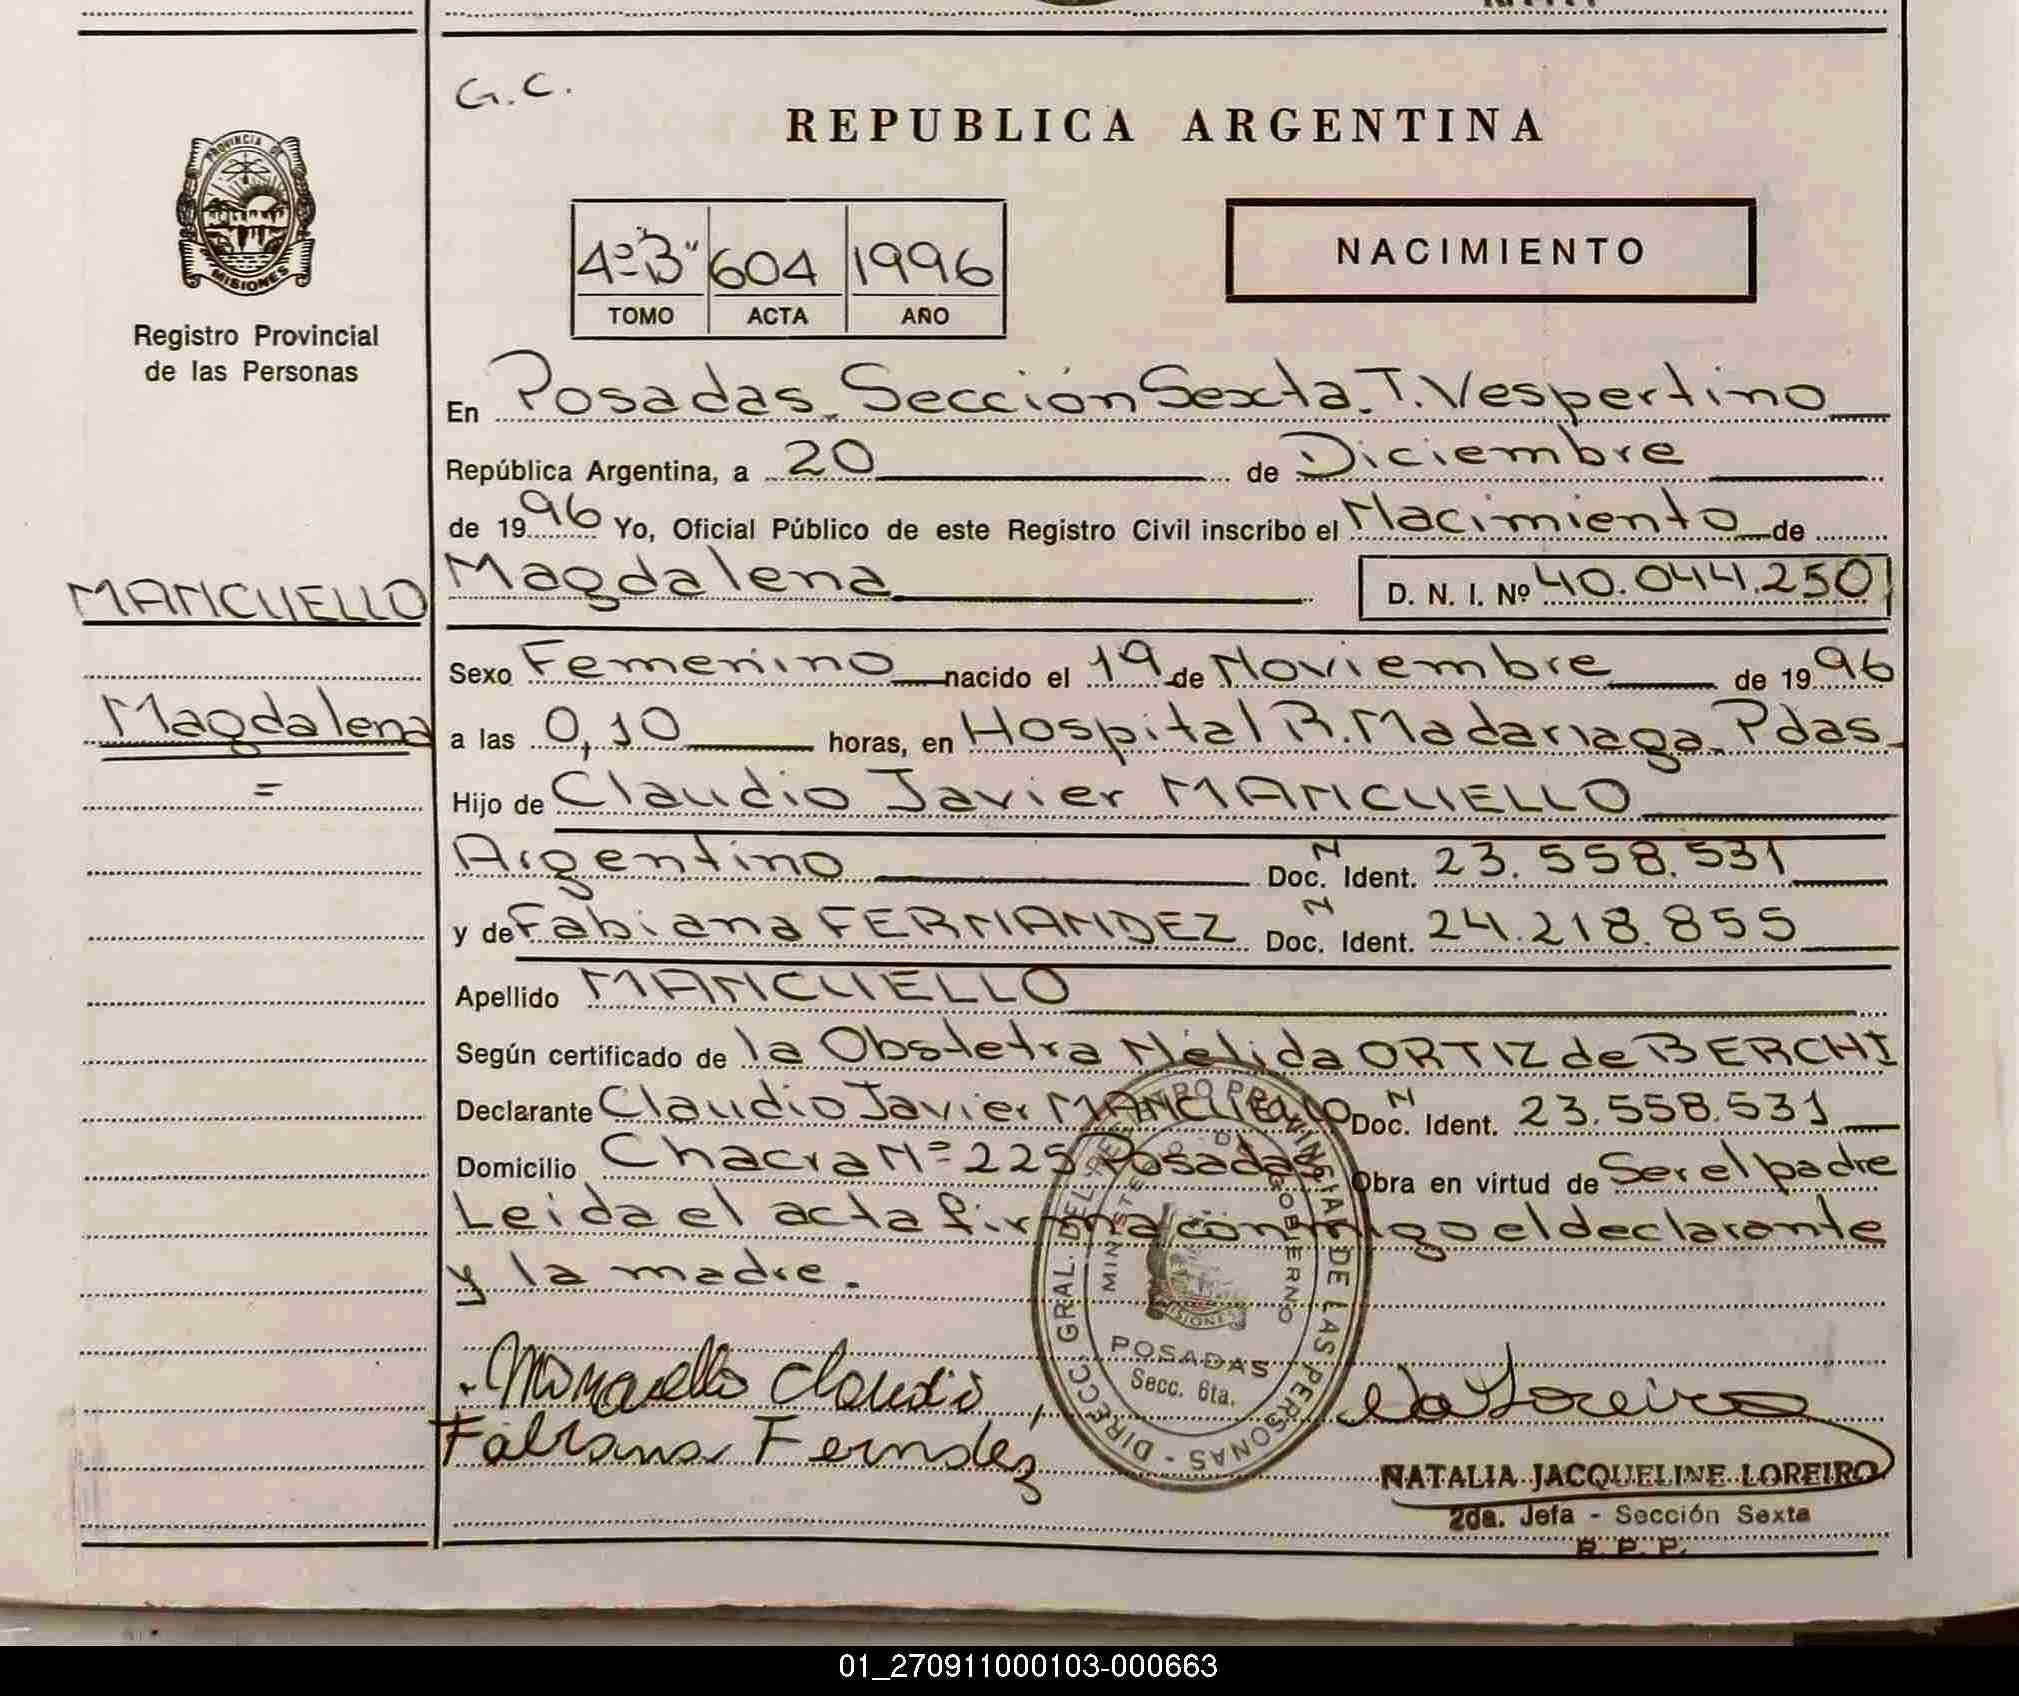 G.C.
REPUBLICA ARGENTINA
PROVINCIA DE
MISIONES
Registro Provincial
de las Personas
4º "B" 604 1996
TOMO ACTA AÑO
NACIMIENTO
En Posadas. Sección Sexta. T. Vespertino
República Argentina, a 20 de Diciembre
de 1996 Yo, Oficial Público de este Registro Civil inscribo el Nacimiento de
MANCUELLO
Magdalena D. N. I. Nº 40.044.250
Sexo Femenino nacido el 19 de Noviembre de 1996
Magdalena
=
a las 0,10 horas, en Hospital R. Madariaga. Pdas.
Hijo de Claudio Javier MANCUELLO
Argentino Doc. N Ident. 23.558.531
y de Fabiana FERNANDEZ Doc. N Ident. 24.218.855
Apellido MANCUELLO
Según certificado de la Obstetra Nélida ORTIZ de BERCHI
Declarante Claudio Javier MANCUELLO Doc. N Ident. 23.558.531
Domicilio Chacra Nº 225 Posadas Obra en virtud de Ser el padre
Leida el acta firma conmigo el declarante
y la madre.
DIRECC. GRAL. DEL REGISTRO PROVINCIAL DE LAS PERSONAS -
MINISTERIO DE GOBIERNO
MISIONES
POSADAS
Secc. 6ta.
Mancuello Claudio
Fabiana Ferndez
NATALIA JACQUELINE LOREIRO
2da. Jefa - Sección Sexta
R. P. P.
01_270911000103-000663